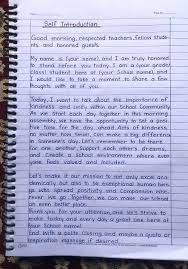 Self Introduction
Good morning, respected teachers, fellow stude-
nts and honored guests
My name is (your name), and I am truly honored
to stand before you today. I am a (your grade/
class) student here at (your School name), and I
would like to take a moment to share a few
thoughts with all of you.
Today, I want to talk about the importance of
kindness and unity within our School Community
As we start each day together in this morning
assembly, we have the opportunity to set a posi
tive tone for the day ahead. Acts of kindness,
no matter how small, can make a big difference
in Someone's day. Let's remember to be there
for one another, support each other's dreams,
and Create a School environment where ever
yone feels valued and included.
Let's make it our mission to not only excel aca
demically but also to be exceptional human bein
gs who spread positivity and Compassion where
never we go. Together, we can make our School
an even better place.
Thank you for your attention, and let's Strive to
make today and every day a great one here at
your School name).
with a polite closing and maybe a quote or
inspiration message if desired.